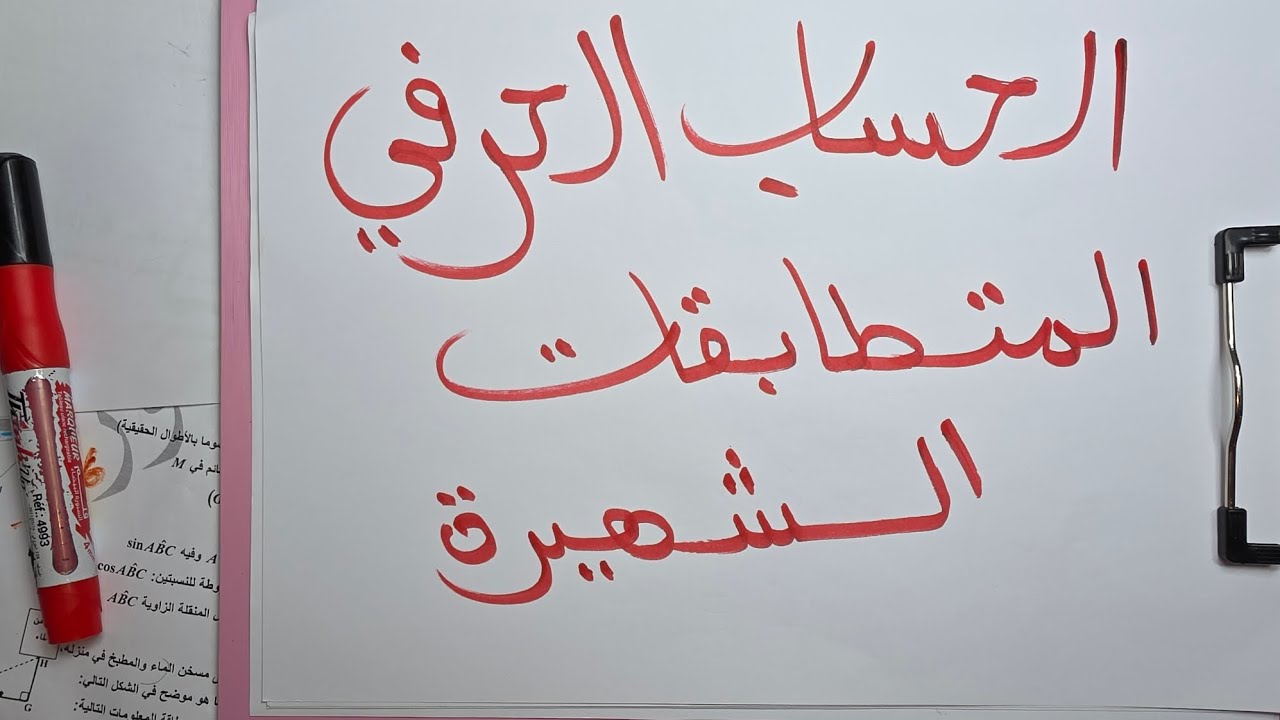 الحساب الحرفي
المتطابقات
الشهيرة
MARQUEUR
Réf.: 4993
بالأطوال الحقيقية)
في M
A وفيه sinAB̂C
للنسبتين: cosAB̂C
المنقلة الزاوية AB̂C
مسخن الماء والمطبخ في منزله.
هو موضح في الشكل التالي:
المعلومات التالية:
H
G